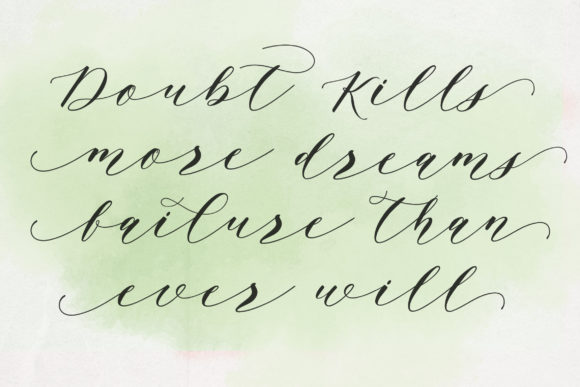 Doubt Kills
more dreams
failure than
ever will